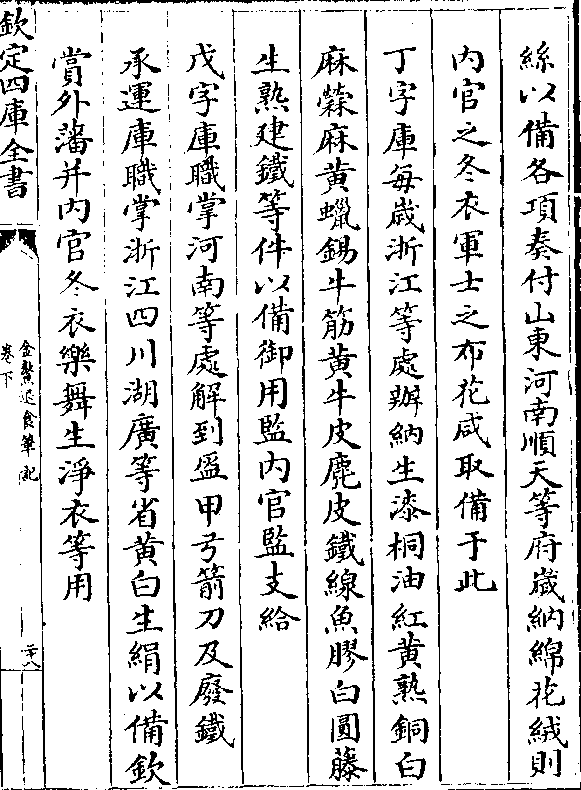 絲以備各項奏付山東河南順天等府嵗納綿花絨則
内官之冬衣軍士之布花咸取備于此
丁字庫每嵗浙江等處辦納生漆桐油紅黄熟銅白
麻䕠麻黄蠟錫牛筋黄牛皮麂皮鐵線魚膠白圓藤
生熟建鐵等件以備御用監内官監支給
戊字庫職掌河南等處解到盔甲弓箭刀及廢鐵
承運庫職掌浙江四川湖廣等省黄白生絹以備欽
賞外藩并内官冬衣樂舞生淨衣等用
欽定四庫全書
金鰲退食筆記
卷下
二十八